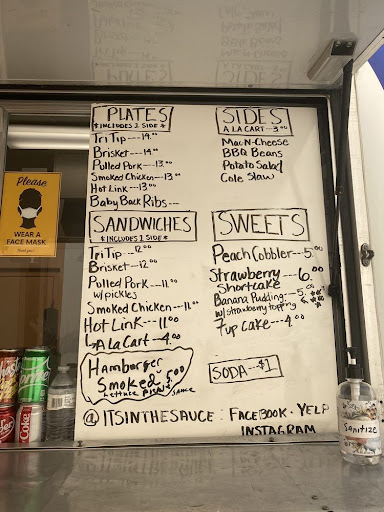 PLATES
*INCLUDES 2 SIDE*
Tri Tip---14.00
Brisket---14.00
Pulled Pork---13.00
Smoked Chicken---13.00
Hot Link---13.00
Baby Back Ribs---
SIDES
A LA CART---3.00
Mac-N-Cheese
BBQ Beans
Potato Salad
Cole Slaw
SANDWICHES
*INCLUDES 1 SIDE*
Tri Tip---12.00
Brisket---12.00
Pulled Pork---11.00
w/pickles
Smoked Chicken---11.00
Hot Link---11.00
A la Cart---4.00
Hamburger
Smoked 5.00
Lettuce sauce
SWEETS
Peach Cobbler---5.00
Strawberry---6.00
Shortcake
Banana Pudding---5.00
w/ strawberry topping
7up cake---4.00
SODA---$1
@ITSINTHESAUCE: FACEBOOK · YELP
INSTAGRAM
Please
WEAR A
FACE MASK
Coke
Sanitize